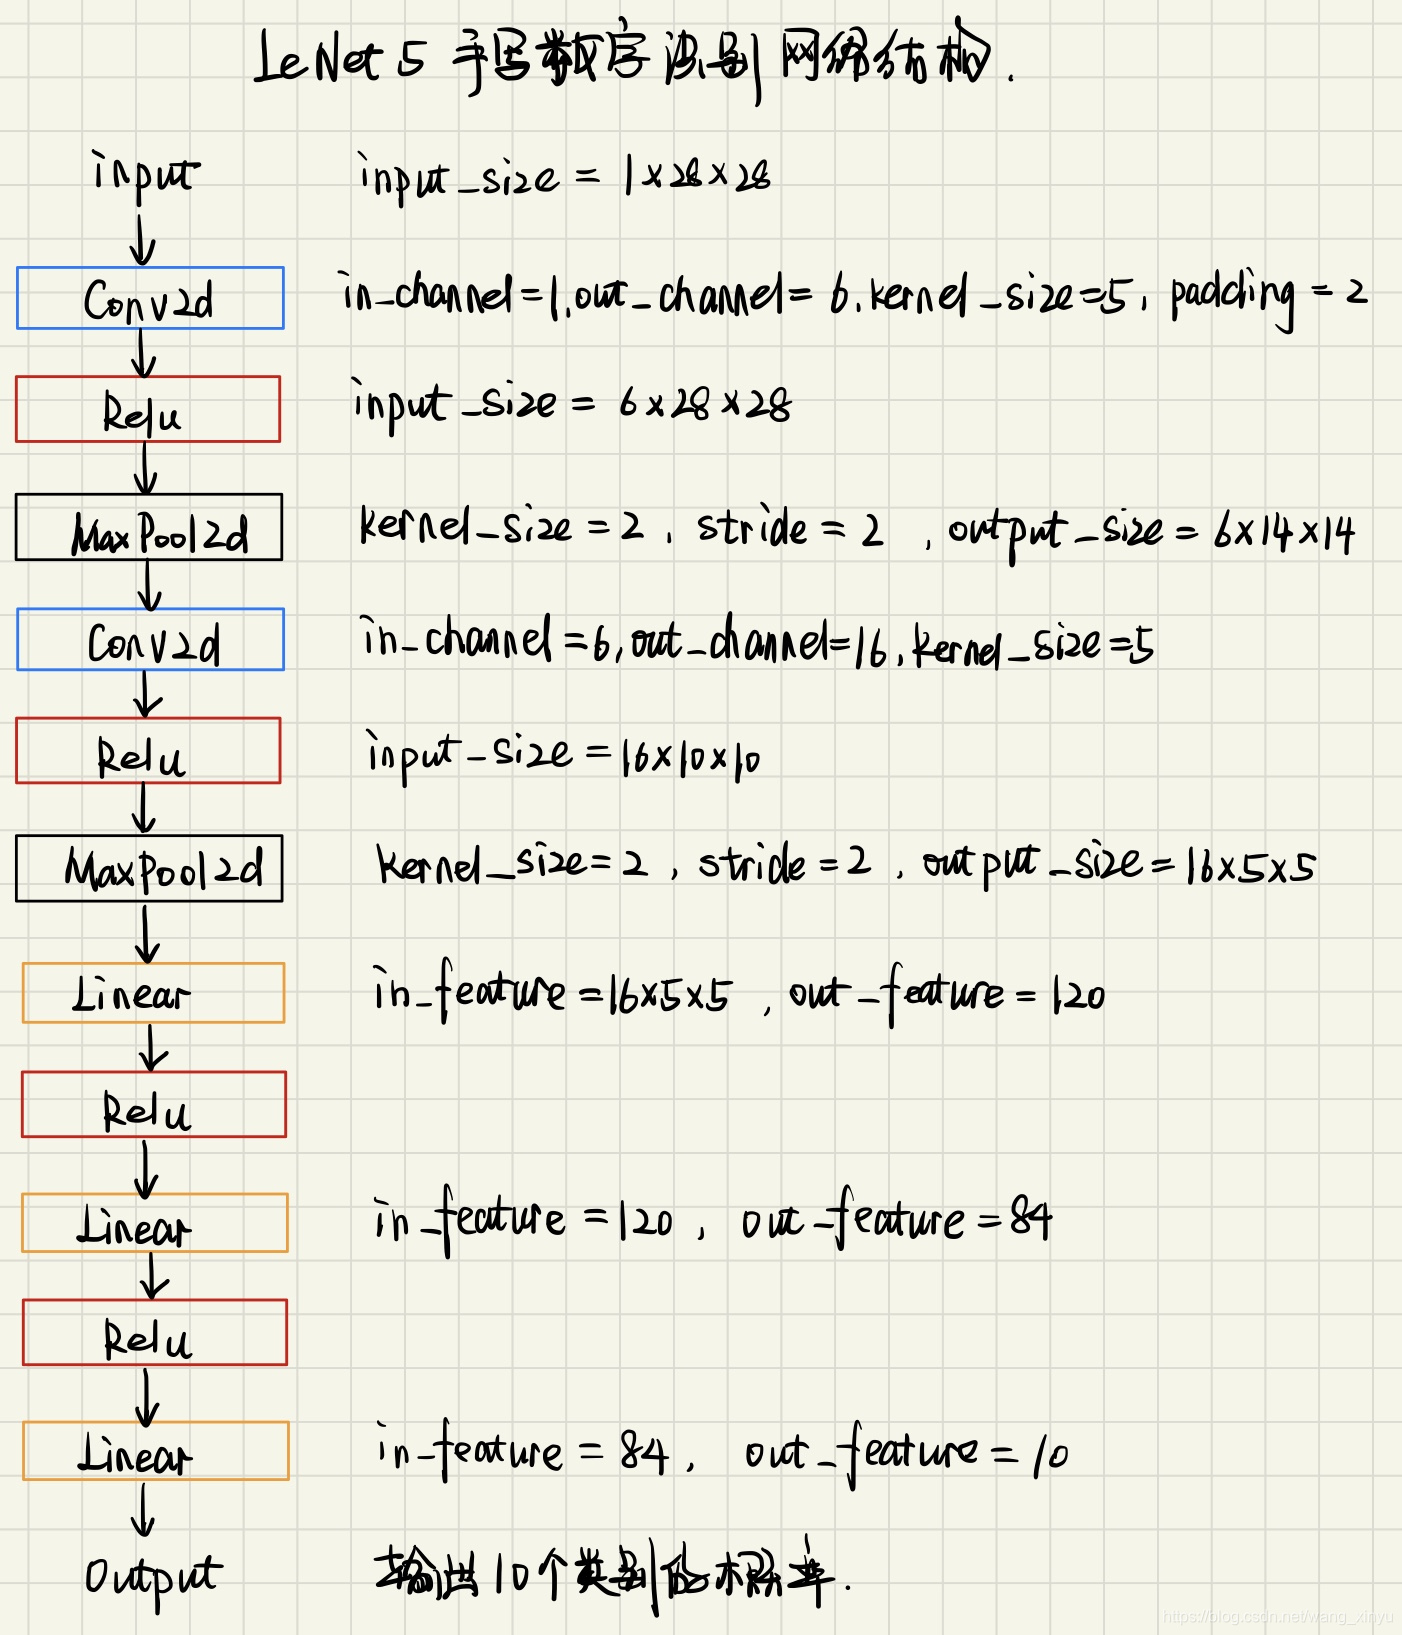 LeNet 5 手写数字识别网络结构.
input input_size = 1×28×28
Conv2d in_channel=1,out_channel= 6,kernel_size=5, padding = 2
Relu input_size = 6×28×28
MaxPool2d kernel_size = 2, stride = 2 , output_size = 6×14×14
Conv2d in_channel = 6, out_channel=16, kernel_size=5
Relu input_size = 16×10×10
MaxPool2d kernel_size = 2, stride = 2, output_size = 16×5×5
Linear in_feature = 16×5×5 , out_feature = 120
Relu
Linear in_feature = 120, out_feature = 84
Relu
Linear in_feature = 84, out_feature = 10
Output 输出10个类别的概率.
https://blog.csdn.net/wang_xinyu